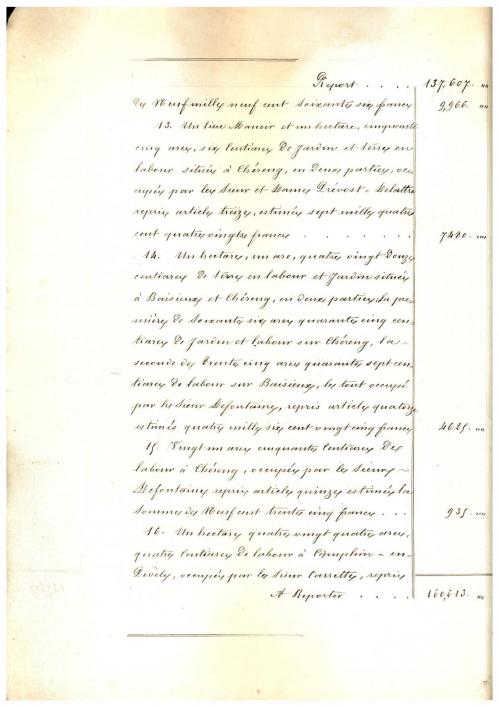 Report . . . . 137,607. "
de Neuf mille neuf cent soixante six francs 9,966. "
13. Un lieu Manoir et un hectare, cinquante
cinq ares, six Centiares De Jardin et terre en
labour située à Chéreng, en Deux parties, oc-
cupée par les Sieur et Dame Prévost = Delattre
repris article treize, estimée sept mille quatre
cent quatre vingts francs . . . . . . . 7480. "
14. Un hectare, un are, quatre vingt Douze
centiares De terre en labour et Jardin située
à Baisieux et Chéreng, en deux parties, la pre-
mière De Soixante six ares quarante cinq cen-
tiares De Jardin et labour sur Chéreng, la =
seconde de Trente cinq ares quarante sept cen-
tiares De labour sur Baisieux, le tout occupé
par le Sieur Defontaine, repris article quatorze
estimés quatre mille six cent vingt cinq francs 4625. "
15. Vingt un ares cinquante Centiares De
labour à Chéreng, occupés par le Sieur ~
Defontaine repris article quinze estimés la
somme de Neuf cent trente cinq francs . . . 935. "
16. Un hectare quatre vingt quatre ares,
quatre Centiares De labour à Camphin = en-
Pévèle, occupés par le Sieur Carrette, repris
A Reporter . . . . 160,613. "